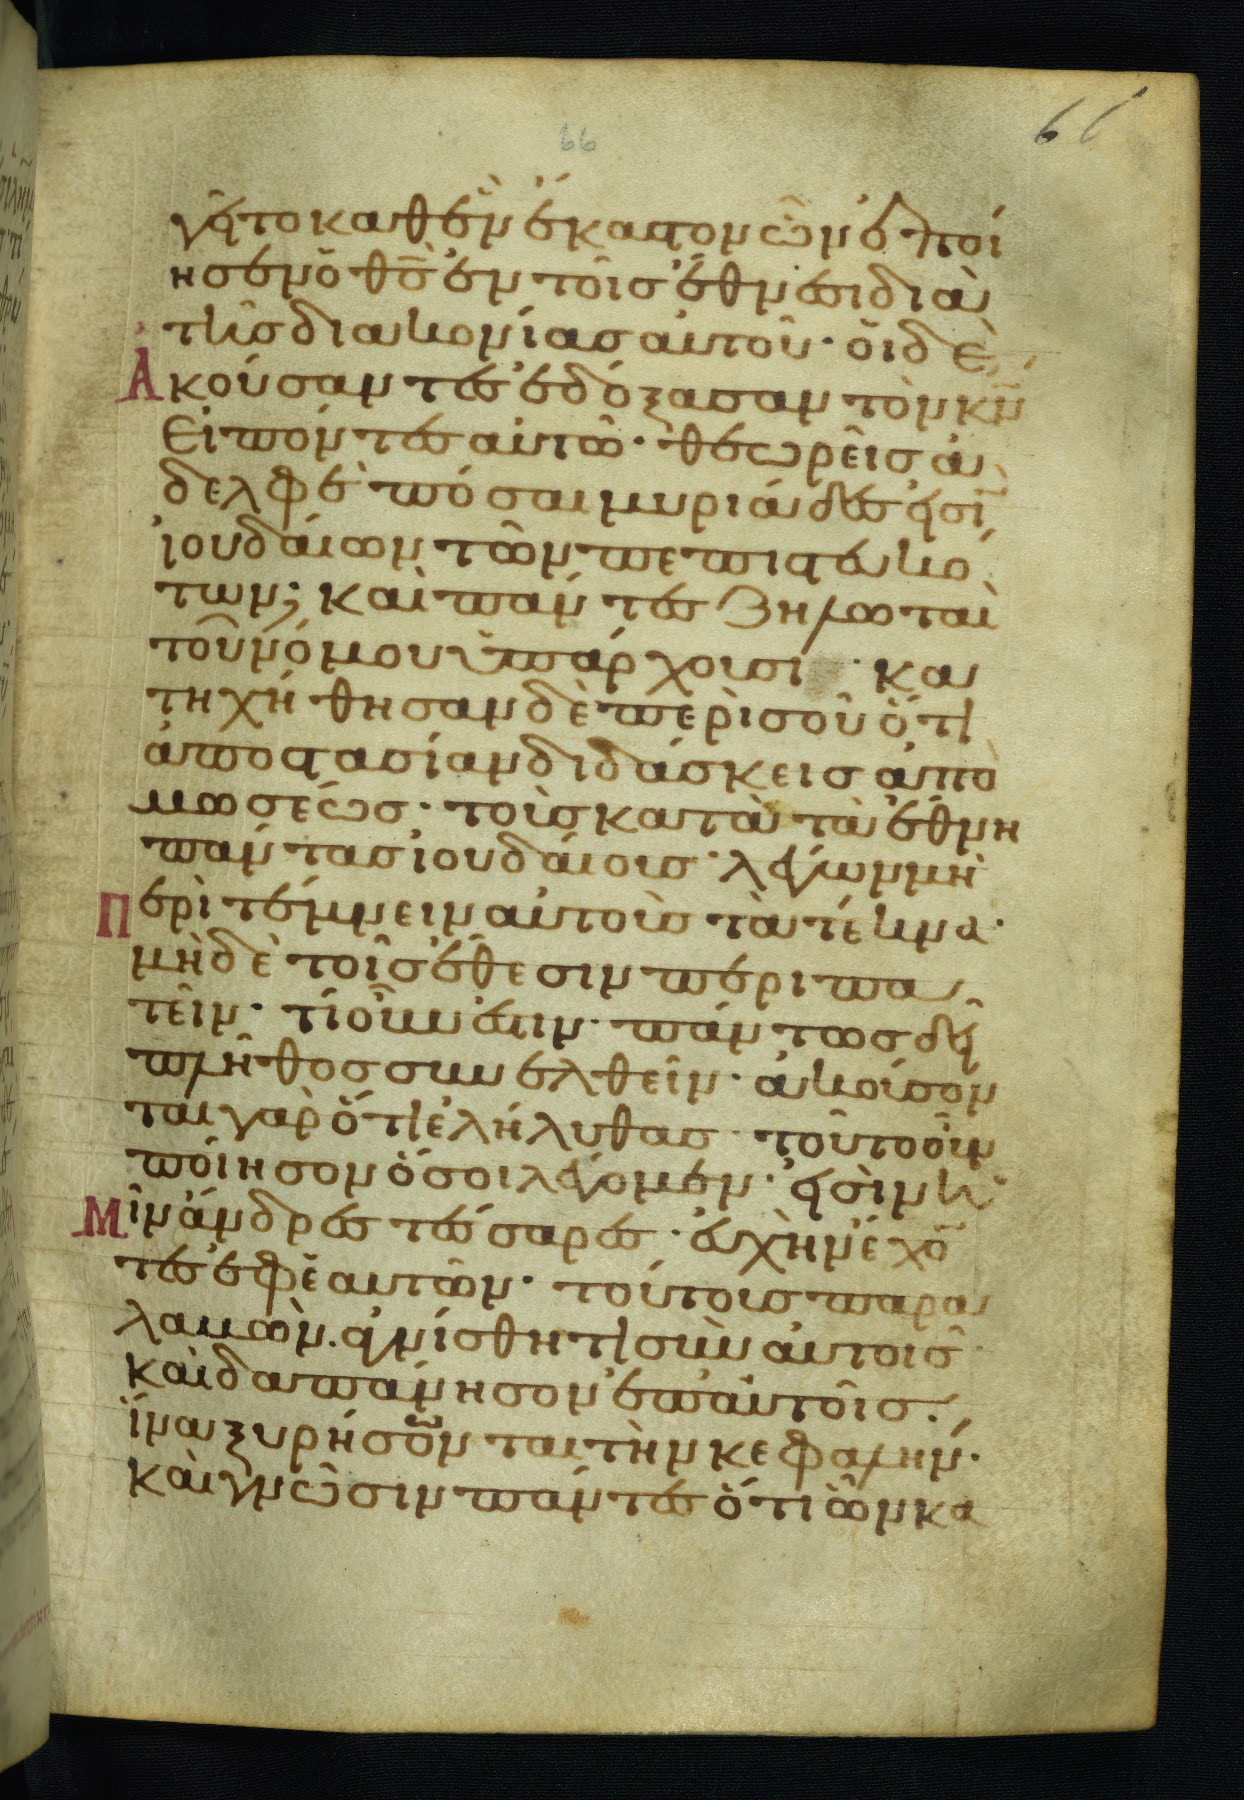 66
66
γεῖτο καθ ἓν ἕκαστον ὧν ἐποί
ησεν ὁ θς ἐν τοῖς ἔθνεσι διὰ
τῆς διακονίας αὐτοῦ· οἱ δὲ
ἀκούσαντες ἐδόξασαν τὸν κν
εἰπόντες αὐτῶ· θεωρεῖς ἀ
δελφὲ πόσαι μυριάδες εἰσὶ
ἰουδαίων τῶν πεπιστευκό
των; καὶ πάντες ζηλωταὶ
τοῦ νόμου ὑπάρχουσι· κα
τηχήθησαν δὲ περὶ σοῦ ὅτι
ἀποστασίαν διδάσκεις ἀπὸ
μωσέως· τοὺς κατὰ τὰ ἔθνη
πάντας ἰουδαίους· λέγων μὴ
περιτέμνειν αὐτοὺς τὰ τέκνα·
μὴδὲ τοῖς ἔθεσιν περιπα
τεῖν· τί οὖν ἐστιν· πάντως δεῖ
πλῆθος συνελθεῖν· ἀκούσον
ται γὰρ ὅτι ἐλήλυθας· τοῦτο οὖν
ποίησον ὅ σοι λέγομεν· εἰσὶν ἡ
μῖν ἄνδρες τέσσαρες· εὐχὴν ἔχον
τες ἐφ ἑαυτῶν· τούτους παρα
λαβὼν. ἁγνίσθητι σὺν αὐτοῖς
καὶ δαπάνησον ἐπ αὐτοῖς.
ἵνα ξυρήσονται τὴν κεφαλήν·
καὶ γνῶσιν πάντες ὅτι ὧν κα